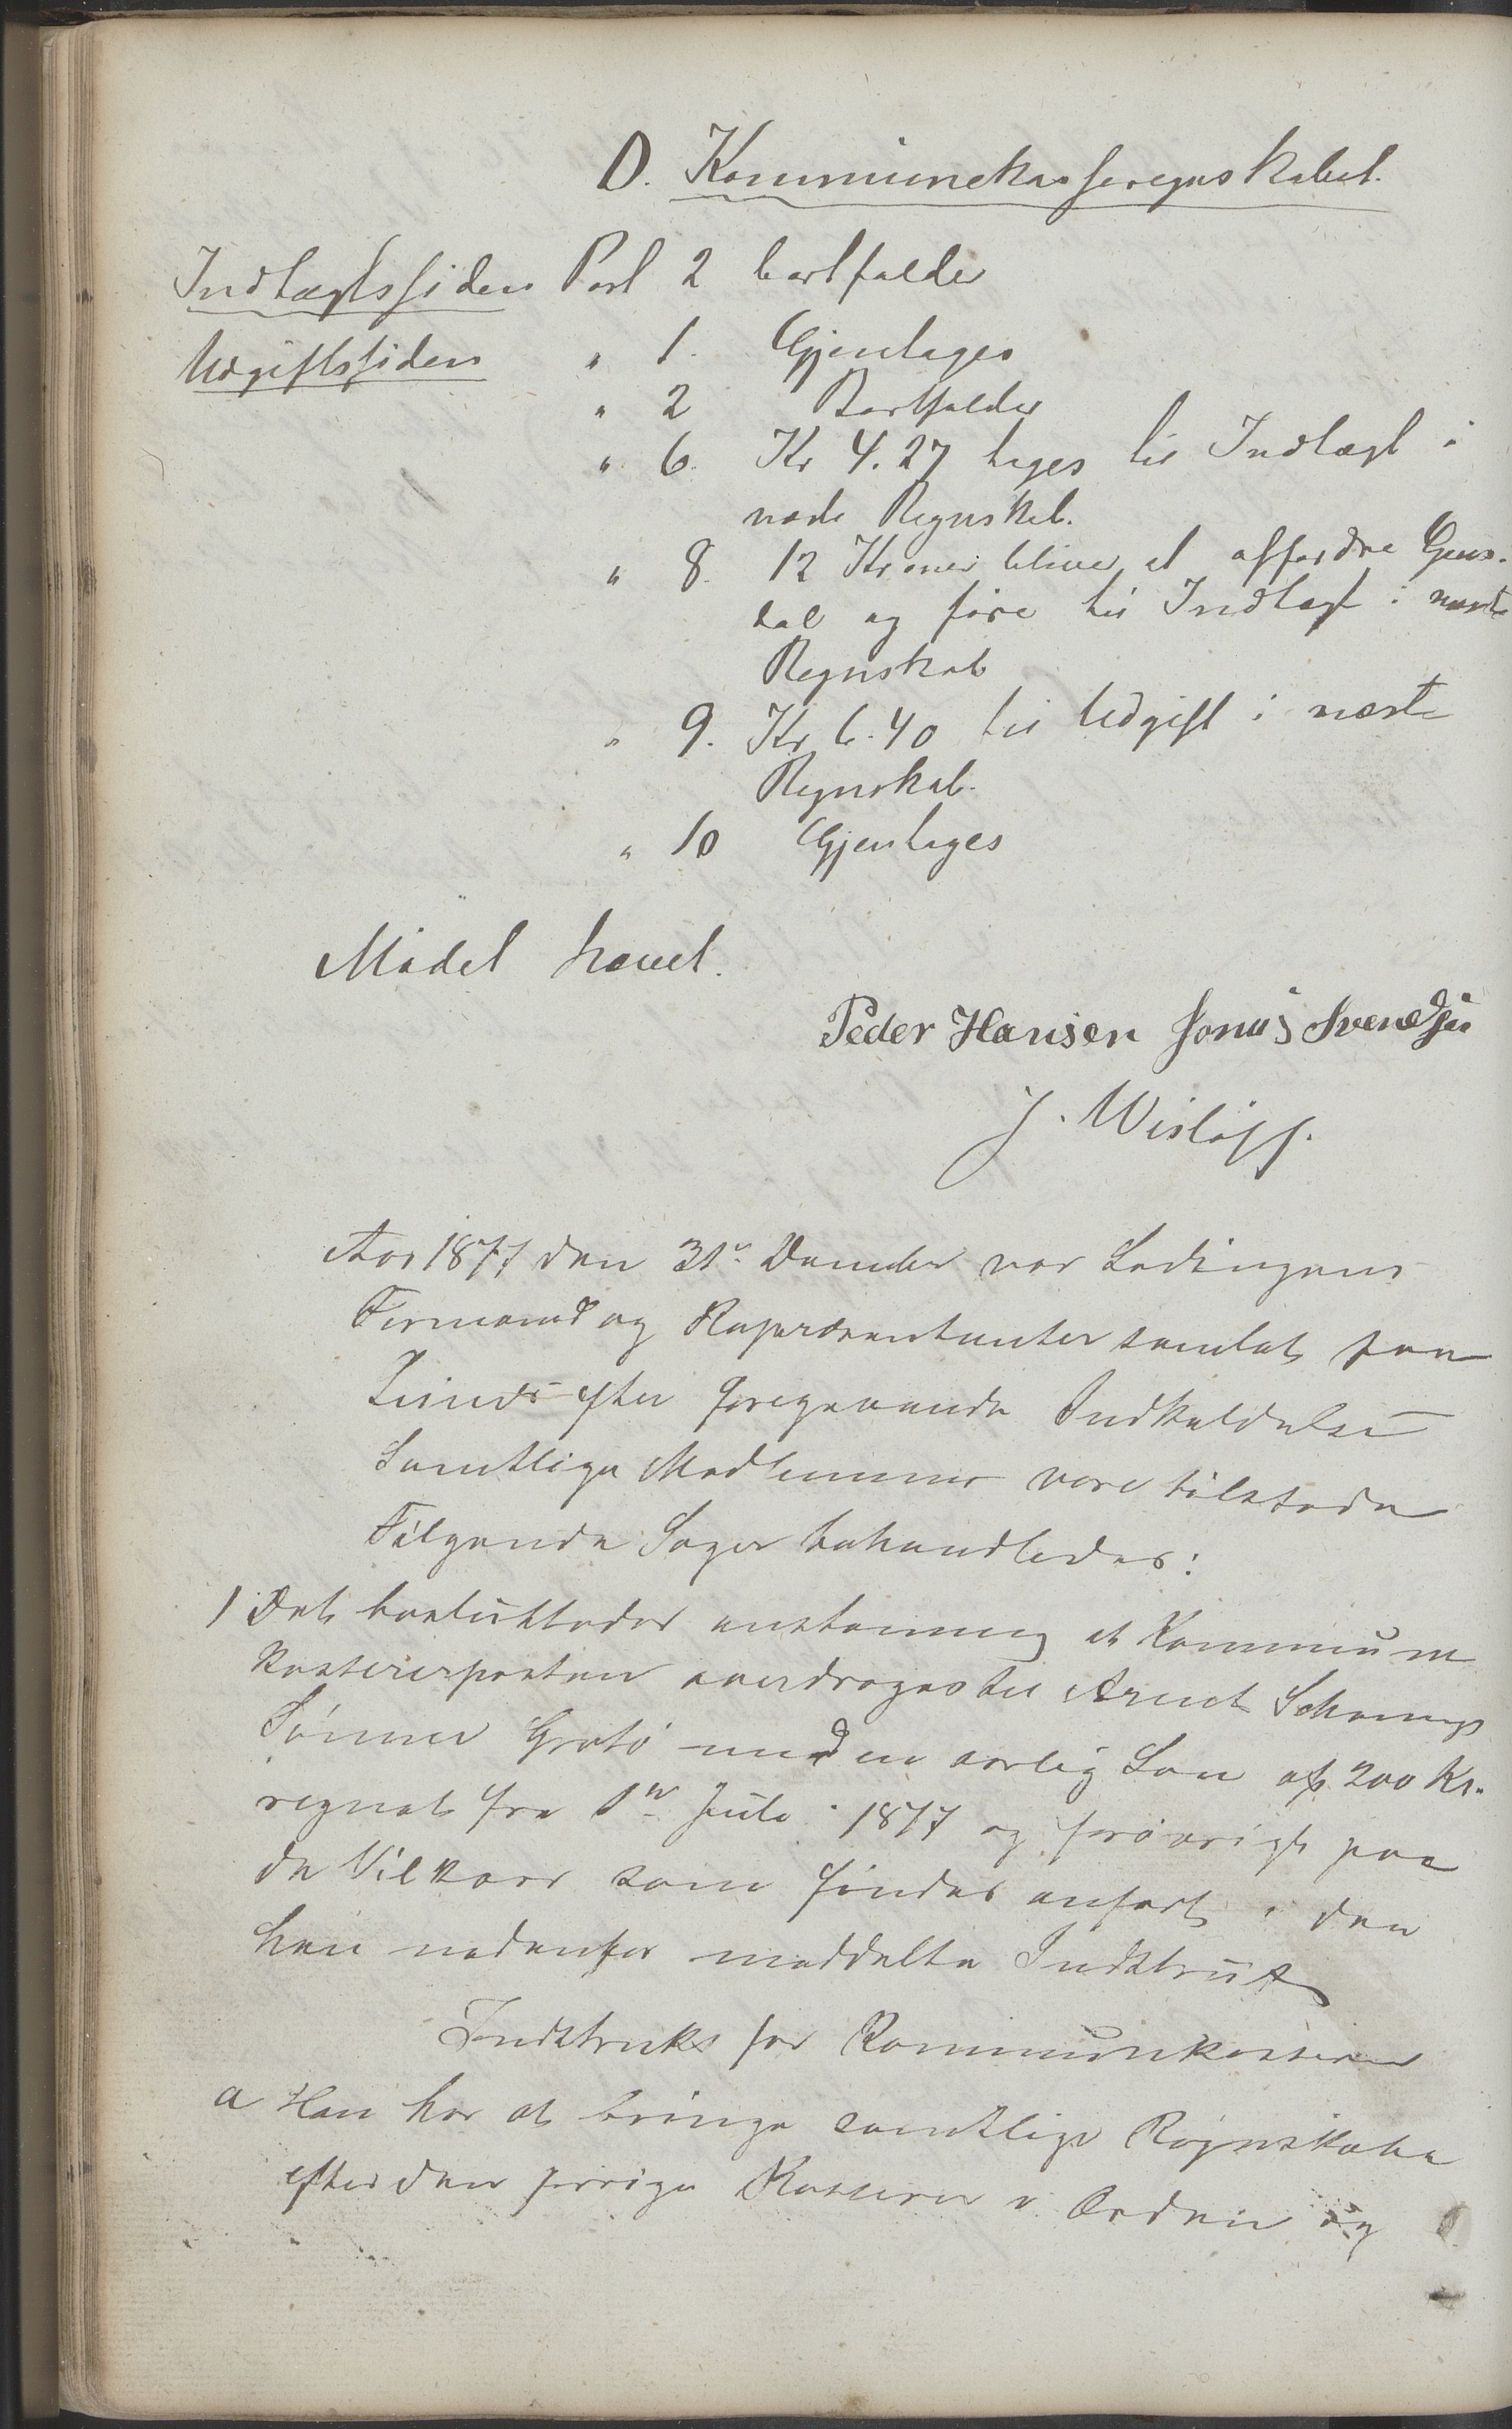 D. Kommunekasseregnskabet.
Indtægtssiden Post 2 bortfalder
Udgiftssiden " 1. Gjentages
" 2 Bortfalder
" 6. Kr 4.27 tages til Indtægt i
næste Regnskab.
" 8. 12 Kroner bliver at affordre
og føre til Indtægt i næste
Regnskab
" 9. Kr 6.40 til Udgift i næste
Regnskab.
" 10 Gjentages
Mødet hævet.
Peder Hansen Jonas Svendsen
J. Wisløff.
Aar 1877 den 31te December var Lødingens
Formænd og Repræsentanter samlet paa
Rinø efter foregaaende Indkaldelse
Samtlige Medlemmer vare tilstede
Følgende Sager behandledes:
1 Det besluttedes enstemmig at Kommune
kassererposten overdrages til Arent Schønings
Sønner Grøtø med en aarlig Løn af 200 Kr.
regnet fra 1te Juli 1877 og forøvrigt paa
de Vilkaar som findes anført i den
ham nedenfor meddelte Indstrux
Indstruks for Kommunekassereren
a Han har at bringe samtlige Regnskaber
efter den forrige Kasserer i Orden og